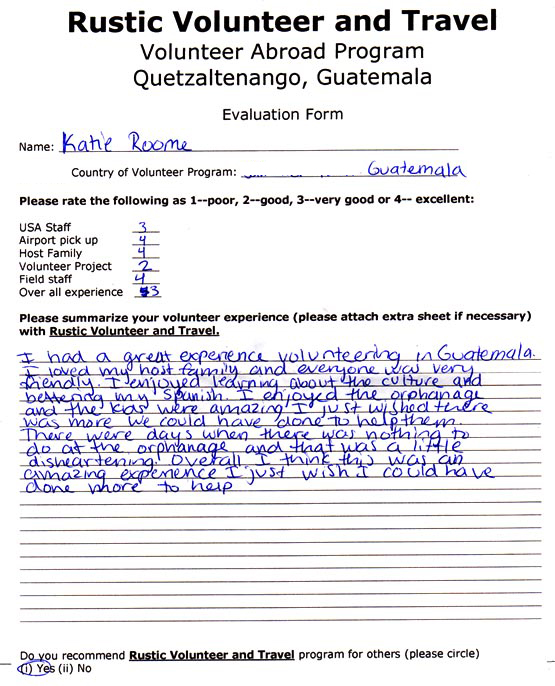 Rustic Volunteer and Travel
Volunteer Abroad Program
Quetzaltenango, Guatemala
Evaluation Form
Name: Katie Roome
Country of Volunteer Program: Guatemala
Please rate the following as 1--poor, 2--good, 3--very good or 4-- excellent:
USA Staff 3
Airport pick up 4
Host Family 4
Volunteer Project 2
Field staff 4
Over all experience 3
Please summarize your volunteer experience (please attach extra sheet if necessary)
with Rustic Volunteer and Travel.
I had a great experience volunteering in Guatemala.
I loved my host family and everyone was very
friendly. I enjoyed learning about the culture and
bettering my Spanish. I enjoyed the orphanage
and the kids were amazing! I just wished there
was more we could have done to help them.
There were days when there was nothing to
do at the orphanage and that was a little
disheartening! Overall I think this was an
amazing experience I just wish I could have
done more to help
Do you recommend Rustic Volunteer and Travel program for others (please circle)
(i) Yes (ii) No